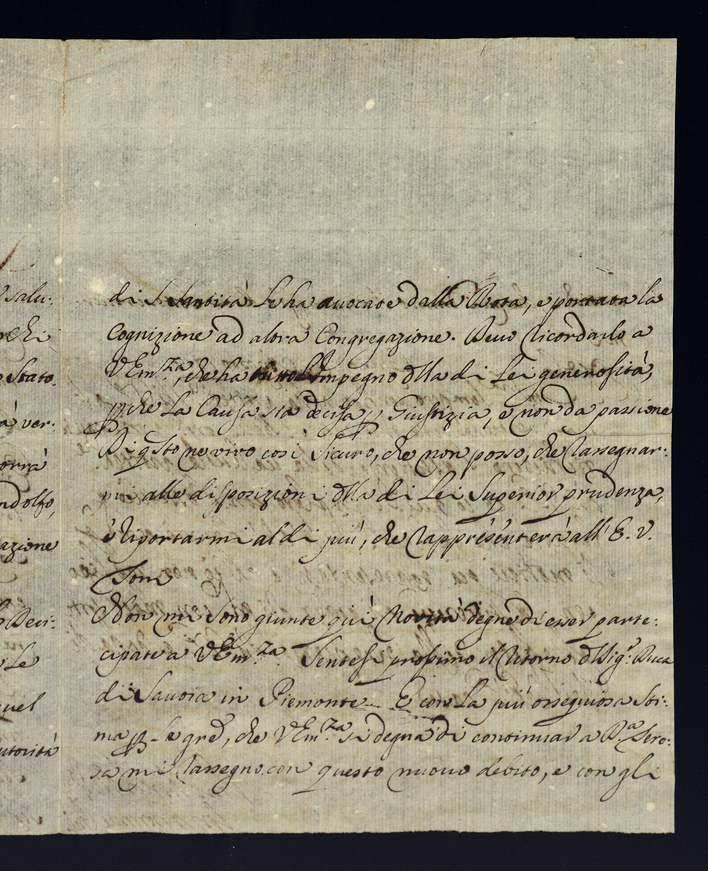 salu:
chi
Stato.
à ver:
orrà
ndolfo,
azione
Deci:
Le
quel
utorità
di S. Santità Le ha avocate dalla Rota, e portata la
Cognizione ad altra Congregazione. Devo ricordarlo a
V. Em.za, che ha tutto l'impegno dlla di Lei generosità,
p che La Causa sia decisa p Giustizia, e non da passione
Di qsto ne vivo così sicuro, che non posso, che rassegnar:
mi alle disposizioni dlla di Lei Superior prudenza,
e riportarmi al di più, che rappresenterà all' E. V.
Non mi sono giunte quì Novità degne di esser parte:
cipate a V. Em.za Sentesi prossimo il ritorno dl Sig.r Duca
di Savoia in Piemonte. E con La più ossequiosa sti:
ma p Le che V. Em.za si degna di continuar a
sa mi rassegno con questo nuovo debito, e con gli